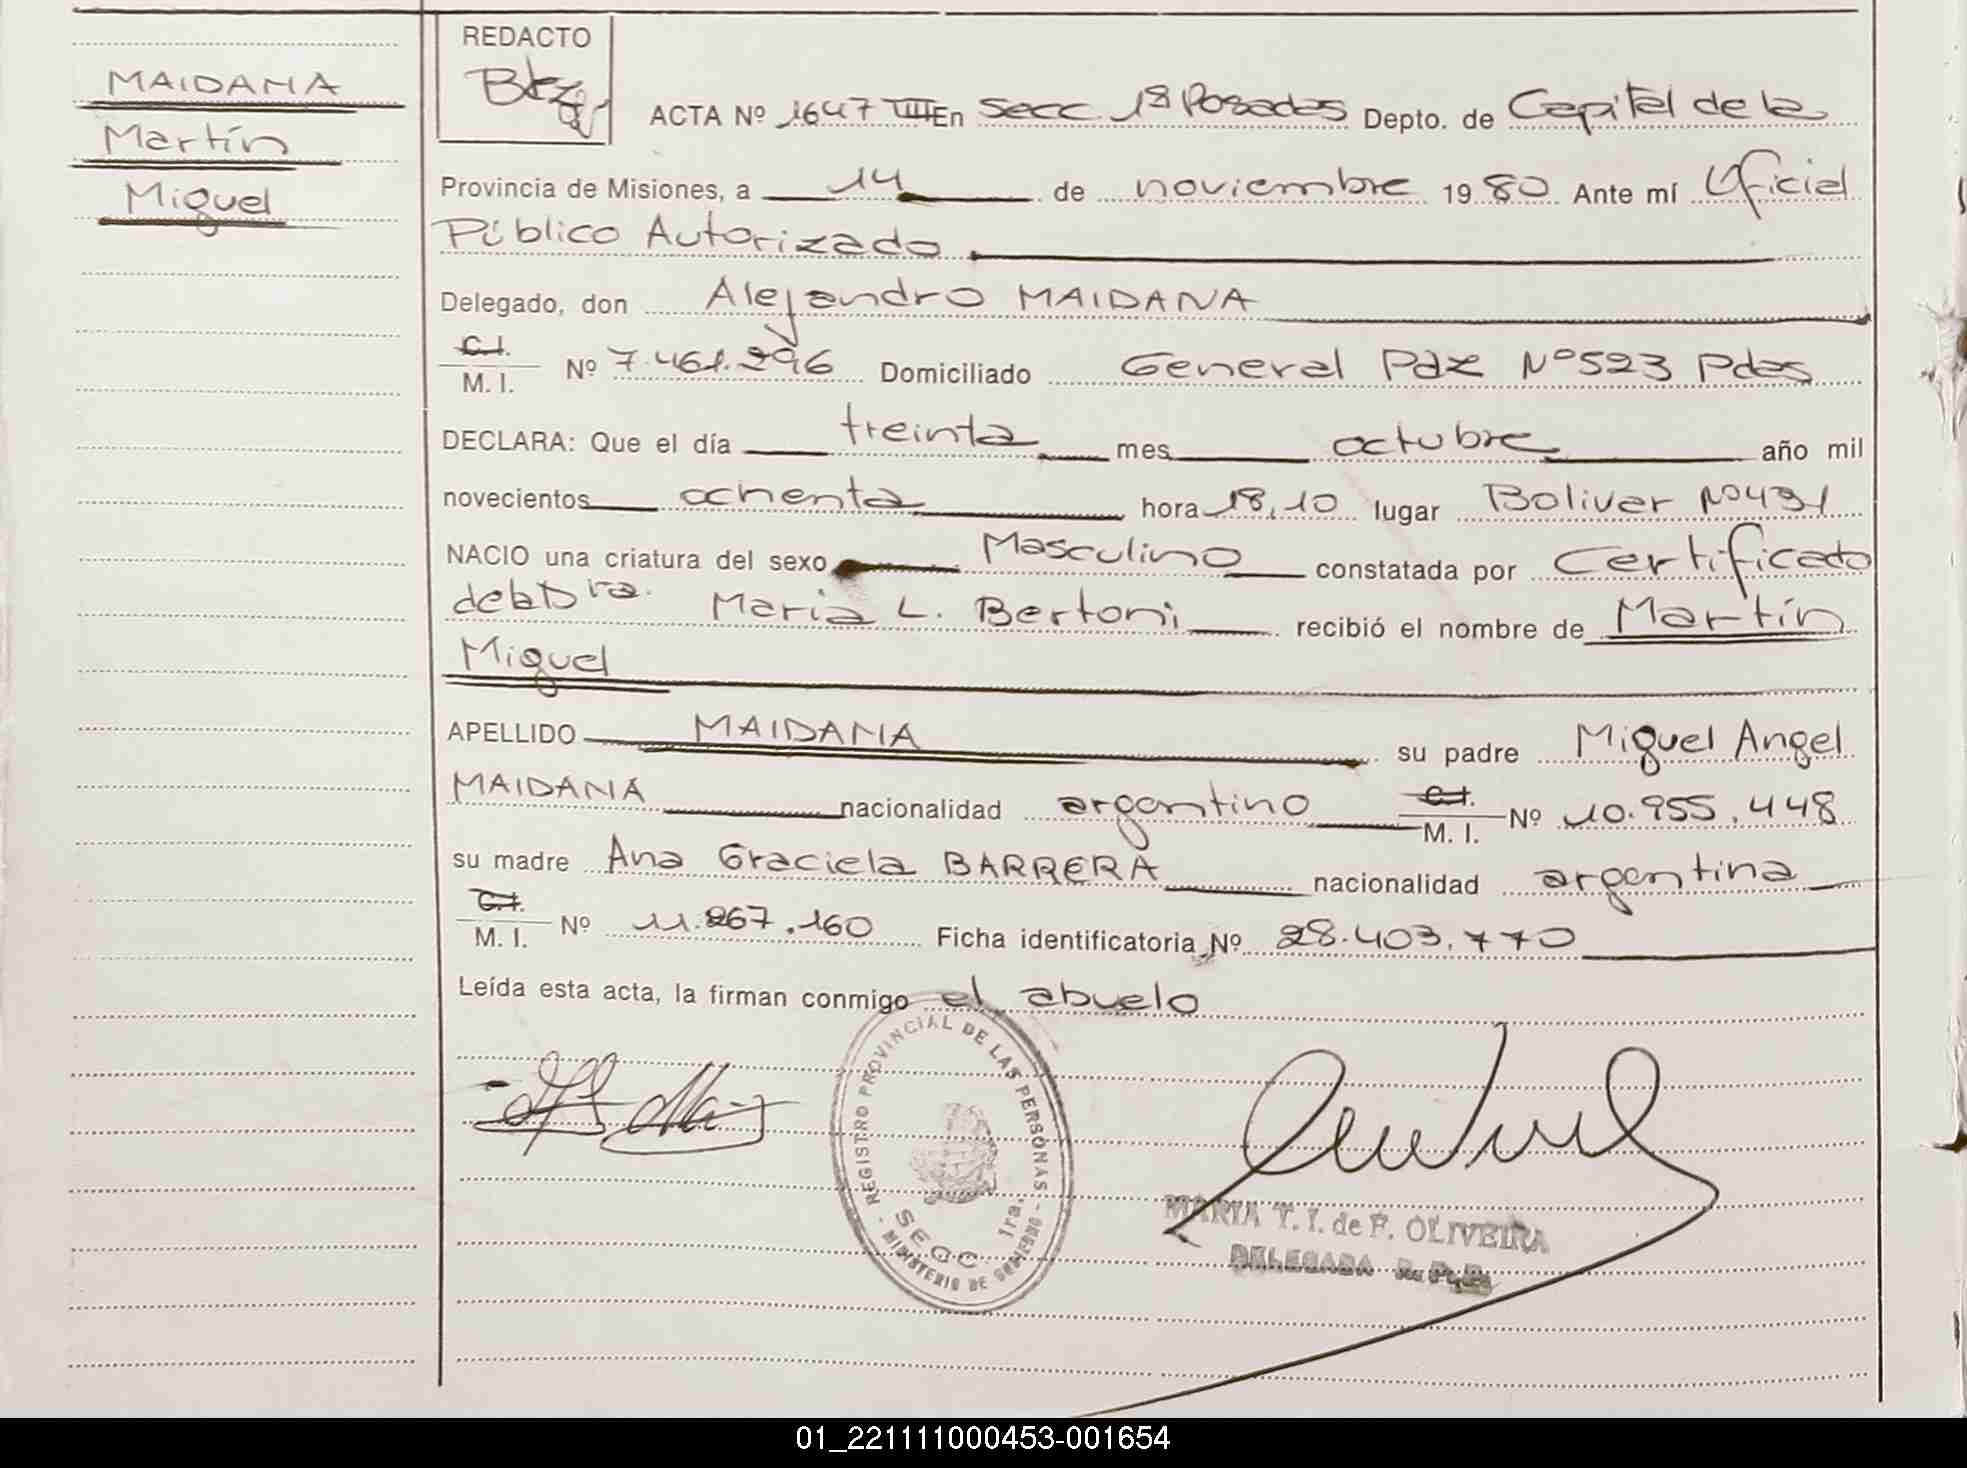 MAIDANA
Martín
Miguel
REDACTO
ACTA Nº 1647 TIII En Secc. 1ª Posadas Depto. de Capital de la
Provincia de Misiones, a 14 de noviembre 1980. Ante mí Oficial
Público Autorizado
Delegado, don Alejandro MAIDANA
C.I.
M. I. Nº 7.461.296 Domiciliado General Paz Nº 523 Pdas
DECLARA: Que el día treinta mes octubre año mil
novecientos ochenta hora 18,10 lugar Bolivar Nº 431
NACIO una criatura del sexo Masculino constatada por Certificado
de la Dra. Maria L. Bertoni recibió el nombre de Martín
Miguel
APELLIDO MAIDANA su padre Miguel Angel
MAIDANA nacionalidad argentino C.I. M. I. Nº 10.955.448
su madre Ana Graciela BARRERA nacionalidad argentina
C.I.
M. I. Nº 11.267.160 Ficha identificatoria Nº 28.403.770
Leída esta acta, la firman conmigo el abuelo
REGISTRO PROVINCIAL DE LAS PERSONAS
SECC. 1ra.
MINISTERIO DE GOBIERNO
MARIA T. I. de F. OLIVEIRA
DELEGADA R. P. P.
01_221111000453-001654